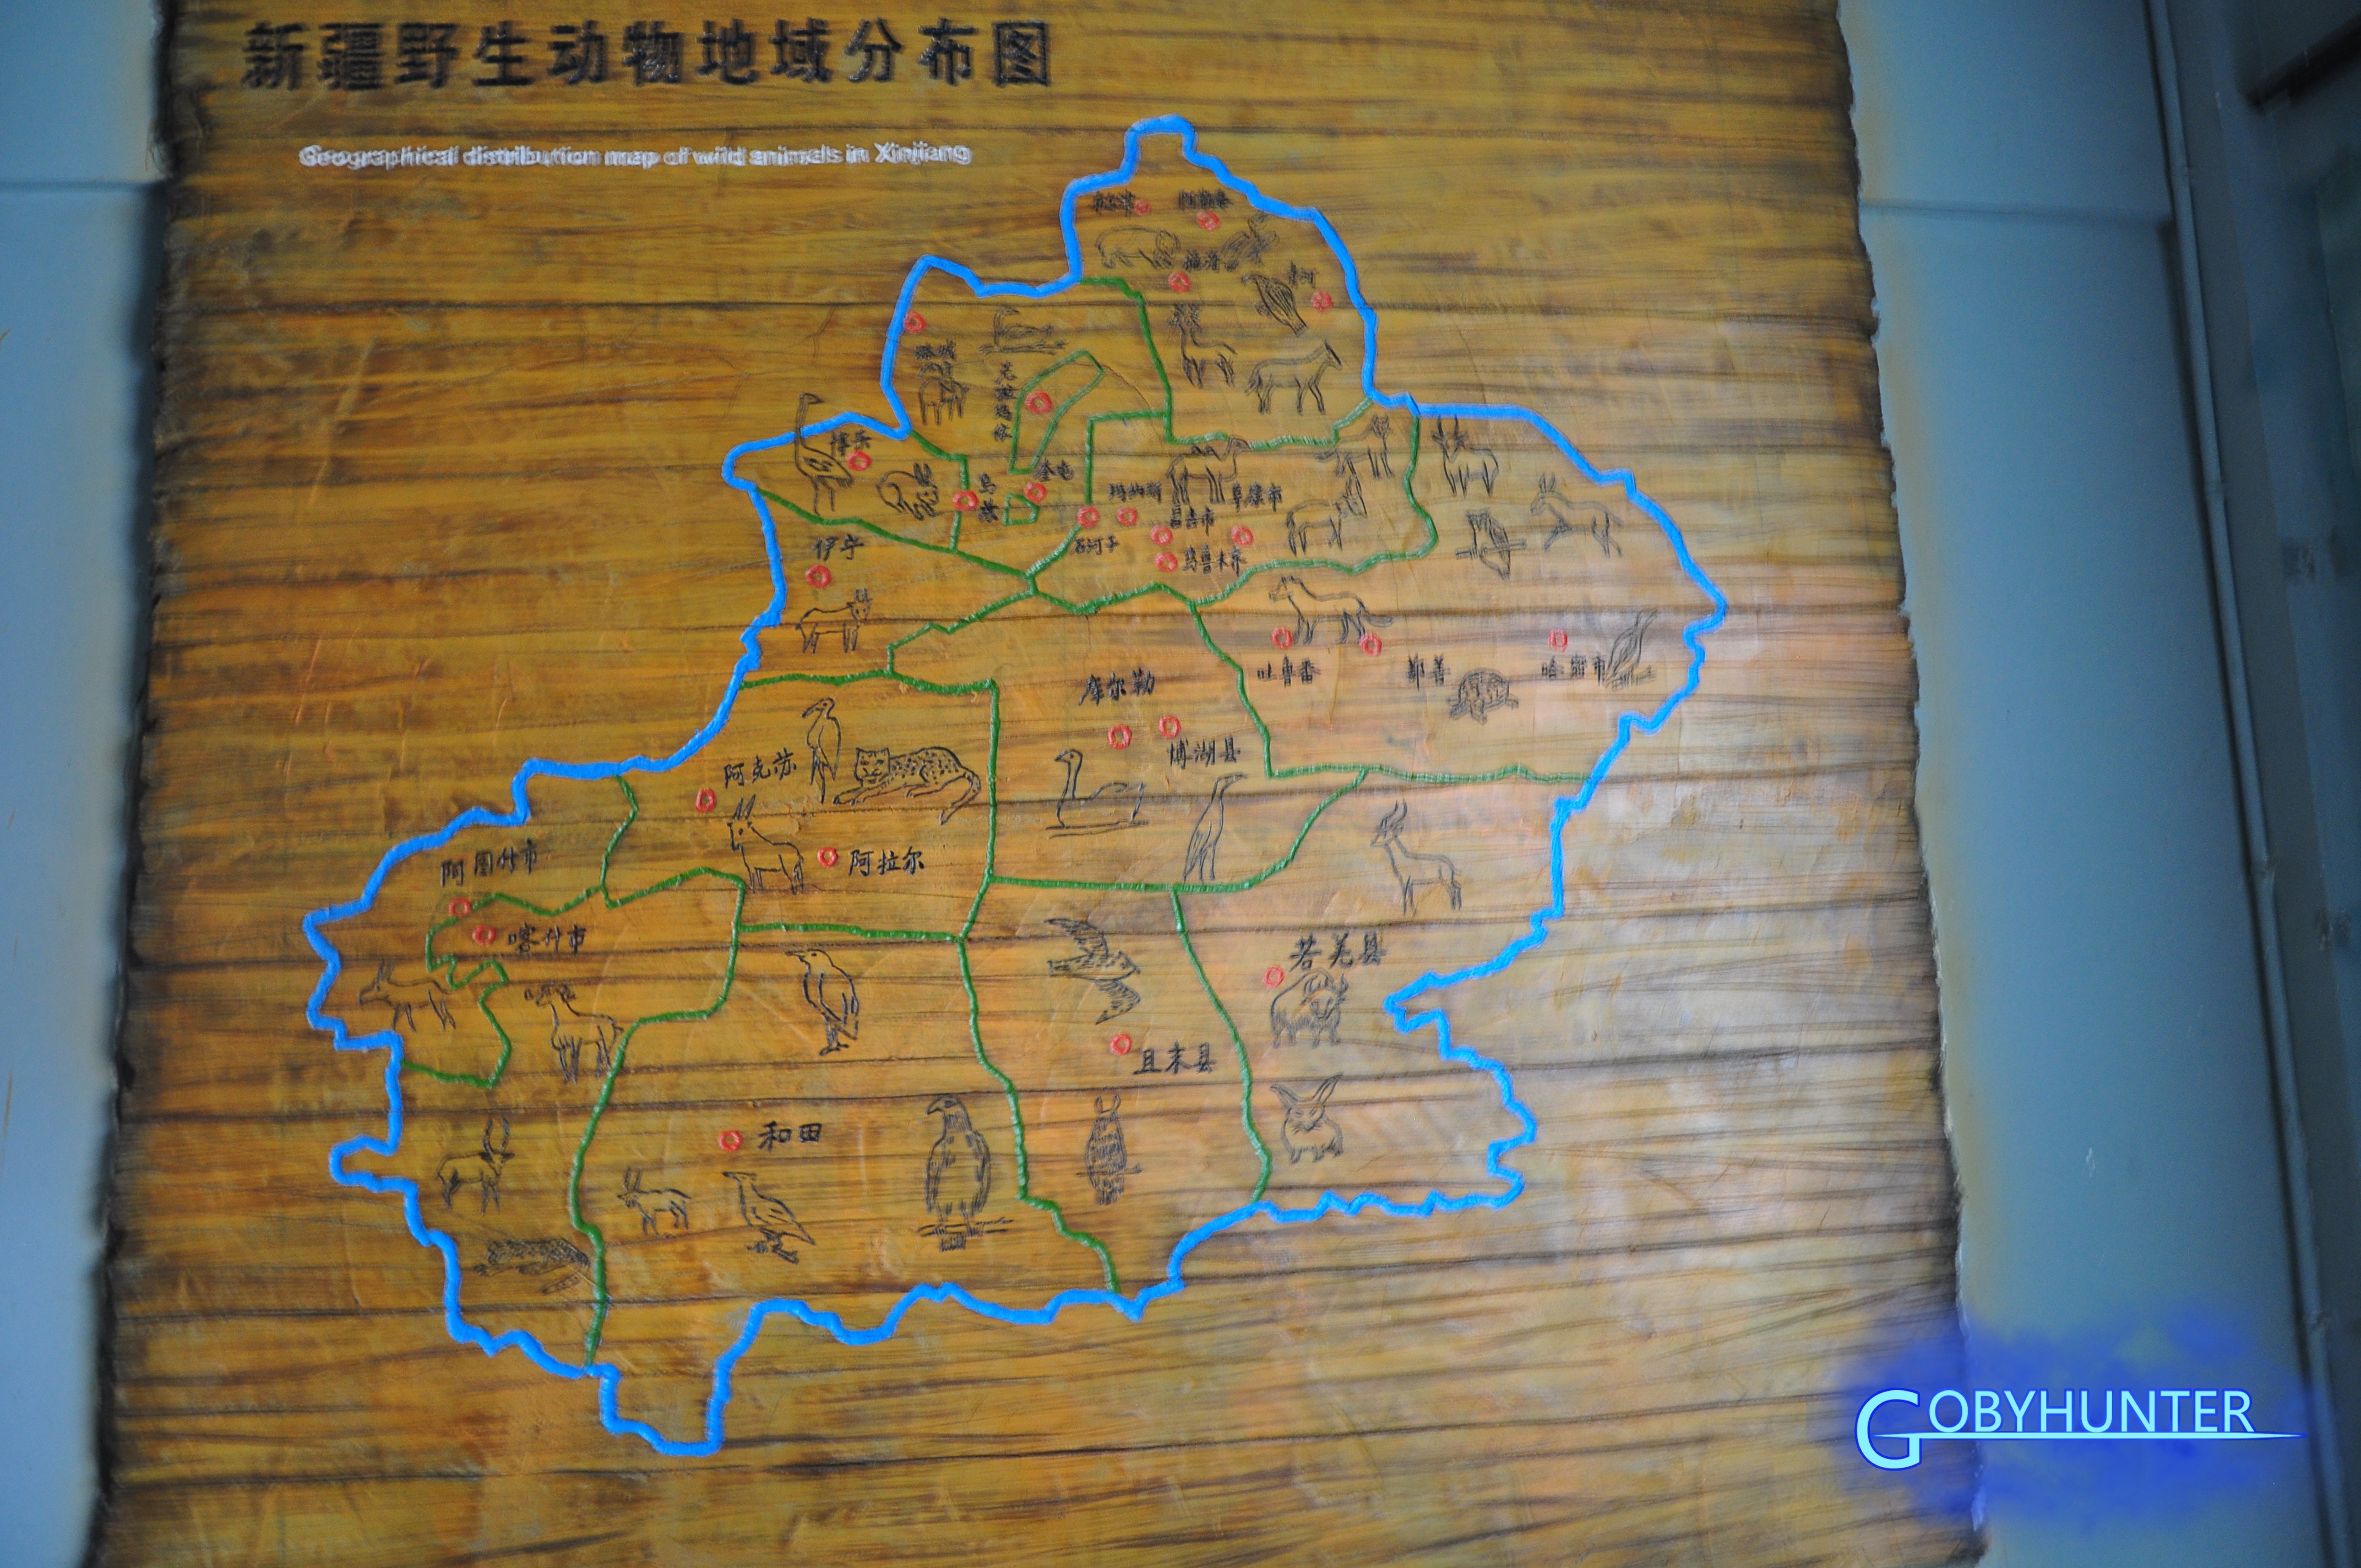 新疆野生动物地域分布图
Geographical distribution map of wild animals in Xinjiang
青河
博乐
奎屯
乌苏
玛纳斯
阜康市
昌吉市
石河子
乌鲁木齐
伊宁
吐鲁番
鄯善
哈密市
库尔勒
博湖县
阿克苏
阿拉尔
阿图什市
喀什市
若羌县
且末县
和田
GOBYHUNTER